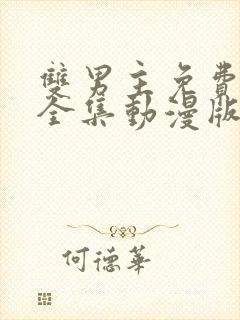 雙男主免費
全集動漫版
何德華